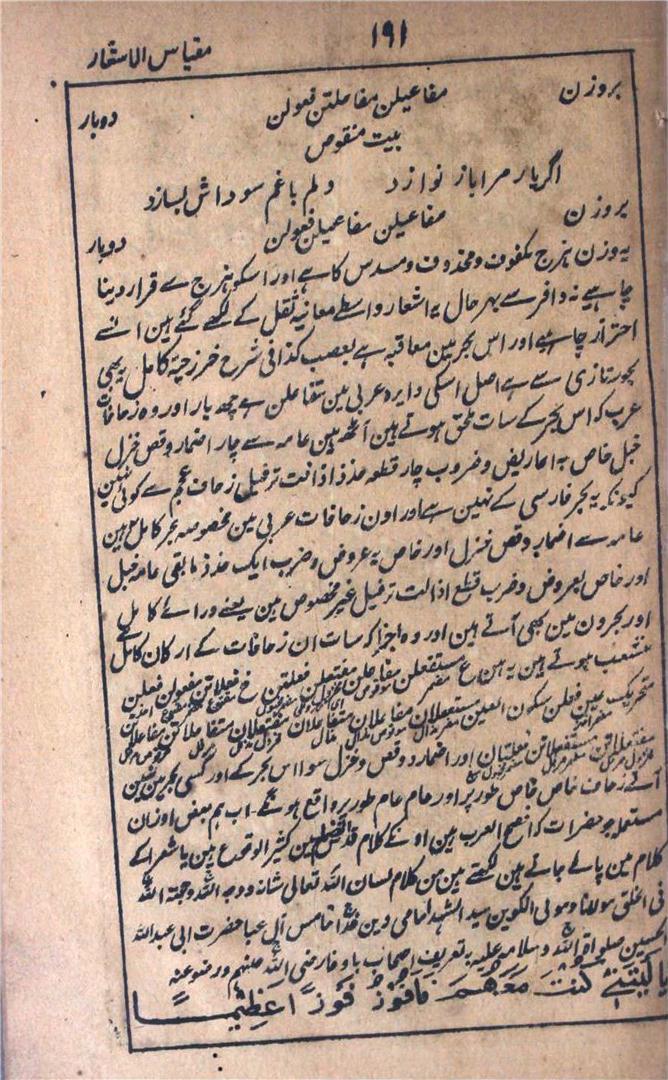 ۱۹۱
مقیاس الاشعار
بروزن مفاعیلن مفاعلتن فعولن دوبار
بیت منقوص
اگر یار مرا باز نوازد دلم باغم سوداش بسازد
بروزن مفاعیلن مفاعیلن فعولن دوبار
یہ وزن ہزج مکفوف ومحذوف ومسدس کا ہے اور اسکو ہزج سے قرار دینا
چاہیے نہ وافر سے بہرحال یہ اشعار واسطے معانیہ ثقل کے لکھے گئے ہین انسے
احتراز چاہیے اور اس بحر مین معاقبہ ہے بعصب کذا فی شرح خزرجیۃ کامل یہ بھی
بحور تازی سے ہے اصل اسکی دایرہ عربی مین متفاعلن ہے چھ بار اور وہ زحافات
عرب کہ اس بحر کے سات ملحق ہوتے ہین آٹھ ہین عامہ سے چار اضمار وقص خزل
خبل خاص بہ اعاریض وضروب چار قطع حذذ اذالت ترفیل زحاف عجم سے کوئی نہین
کیونکہ یہ بحر فارسی کے نہین ہے اور اون زحافات عربی مین مخصوصہ بحر کامل ہین
عامہ سے اضمار وقص خزل اور خاص بہ عروض وضرب ایک حذذ مابقی عامہ خبل
اور خاص بعروض وضرب قطع اذالت ترفیل غیر مخصوص ہین یعنے ورائے کامل
اور بحرون مین بھی آتے ہین اور وہ اجزا کہ سات ان زحافات کے ارکان کامل سے
منشعب ہوتے ہین یہ ہین ع مستفعلن مفاعلن مفتعلن فعلتن ع فعلاتن مفعولن فعلن
تحریک عین فعلن سکون العین مستفعلان مفاعلان متفاعلان مفتعلان متفاعلاتن مفاعلاتن
مفتعلاتن مستفعلاتن اور اضمار و وقص وخزل سوا اس بحر کے اور کسی بحر مین نہین
آتے زحاف خاص خاص طور پر اور عام عام طور پر واقع ہونگے۔ اب ہم بعض اوزان
مستعملہ جو حضرات کہ افصح العرب ہین اونکے کلام مین کثیر الوقوع ہین یا شعرا کے
کلام مین پائے جاتے ہین لکھتے ہین من کلام لسان اللہ تعالی شانہ ووجہ اللہ وحجۃ اللہ
فی الخلق مولانا ومولی الکونین سید الشہدا حامی دین خدا خامس آل عبا حضرت ابی عبداللہ
الحسین صلوات اللہ وسلامہ علیہ بہ تعریف اصحاب باوفا رضی اللہ عنہم ورضوعنہ
یا لیتنی کنت معهم فافوز فوزا عظیما